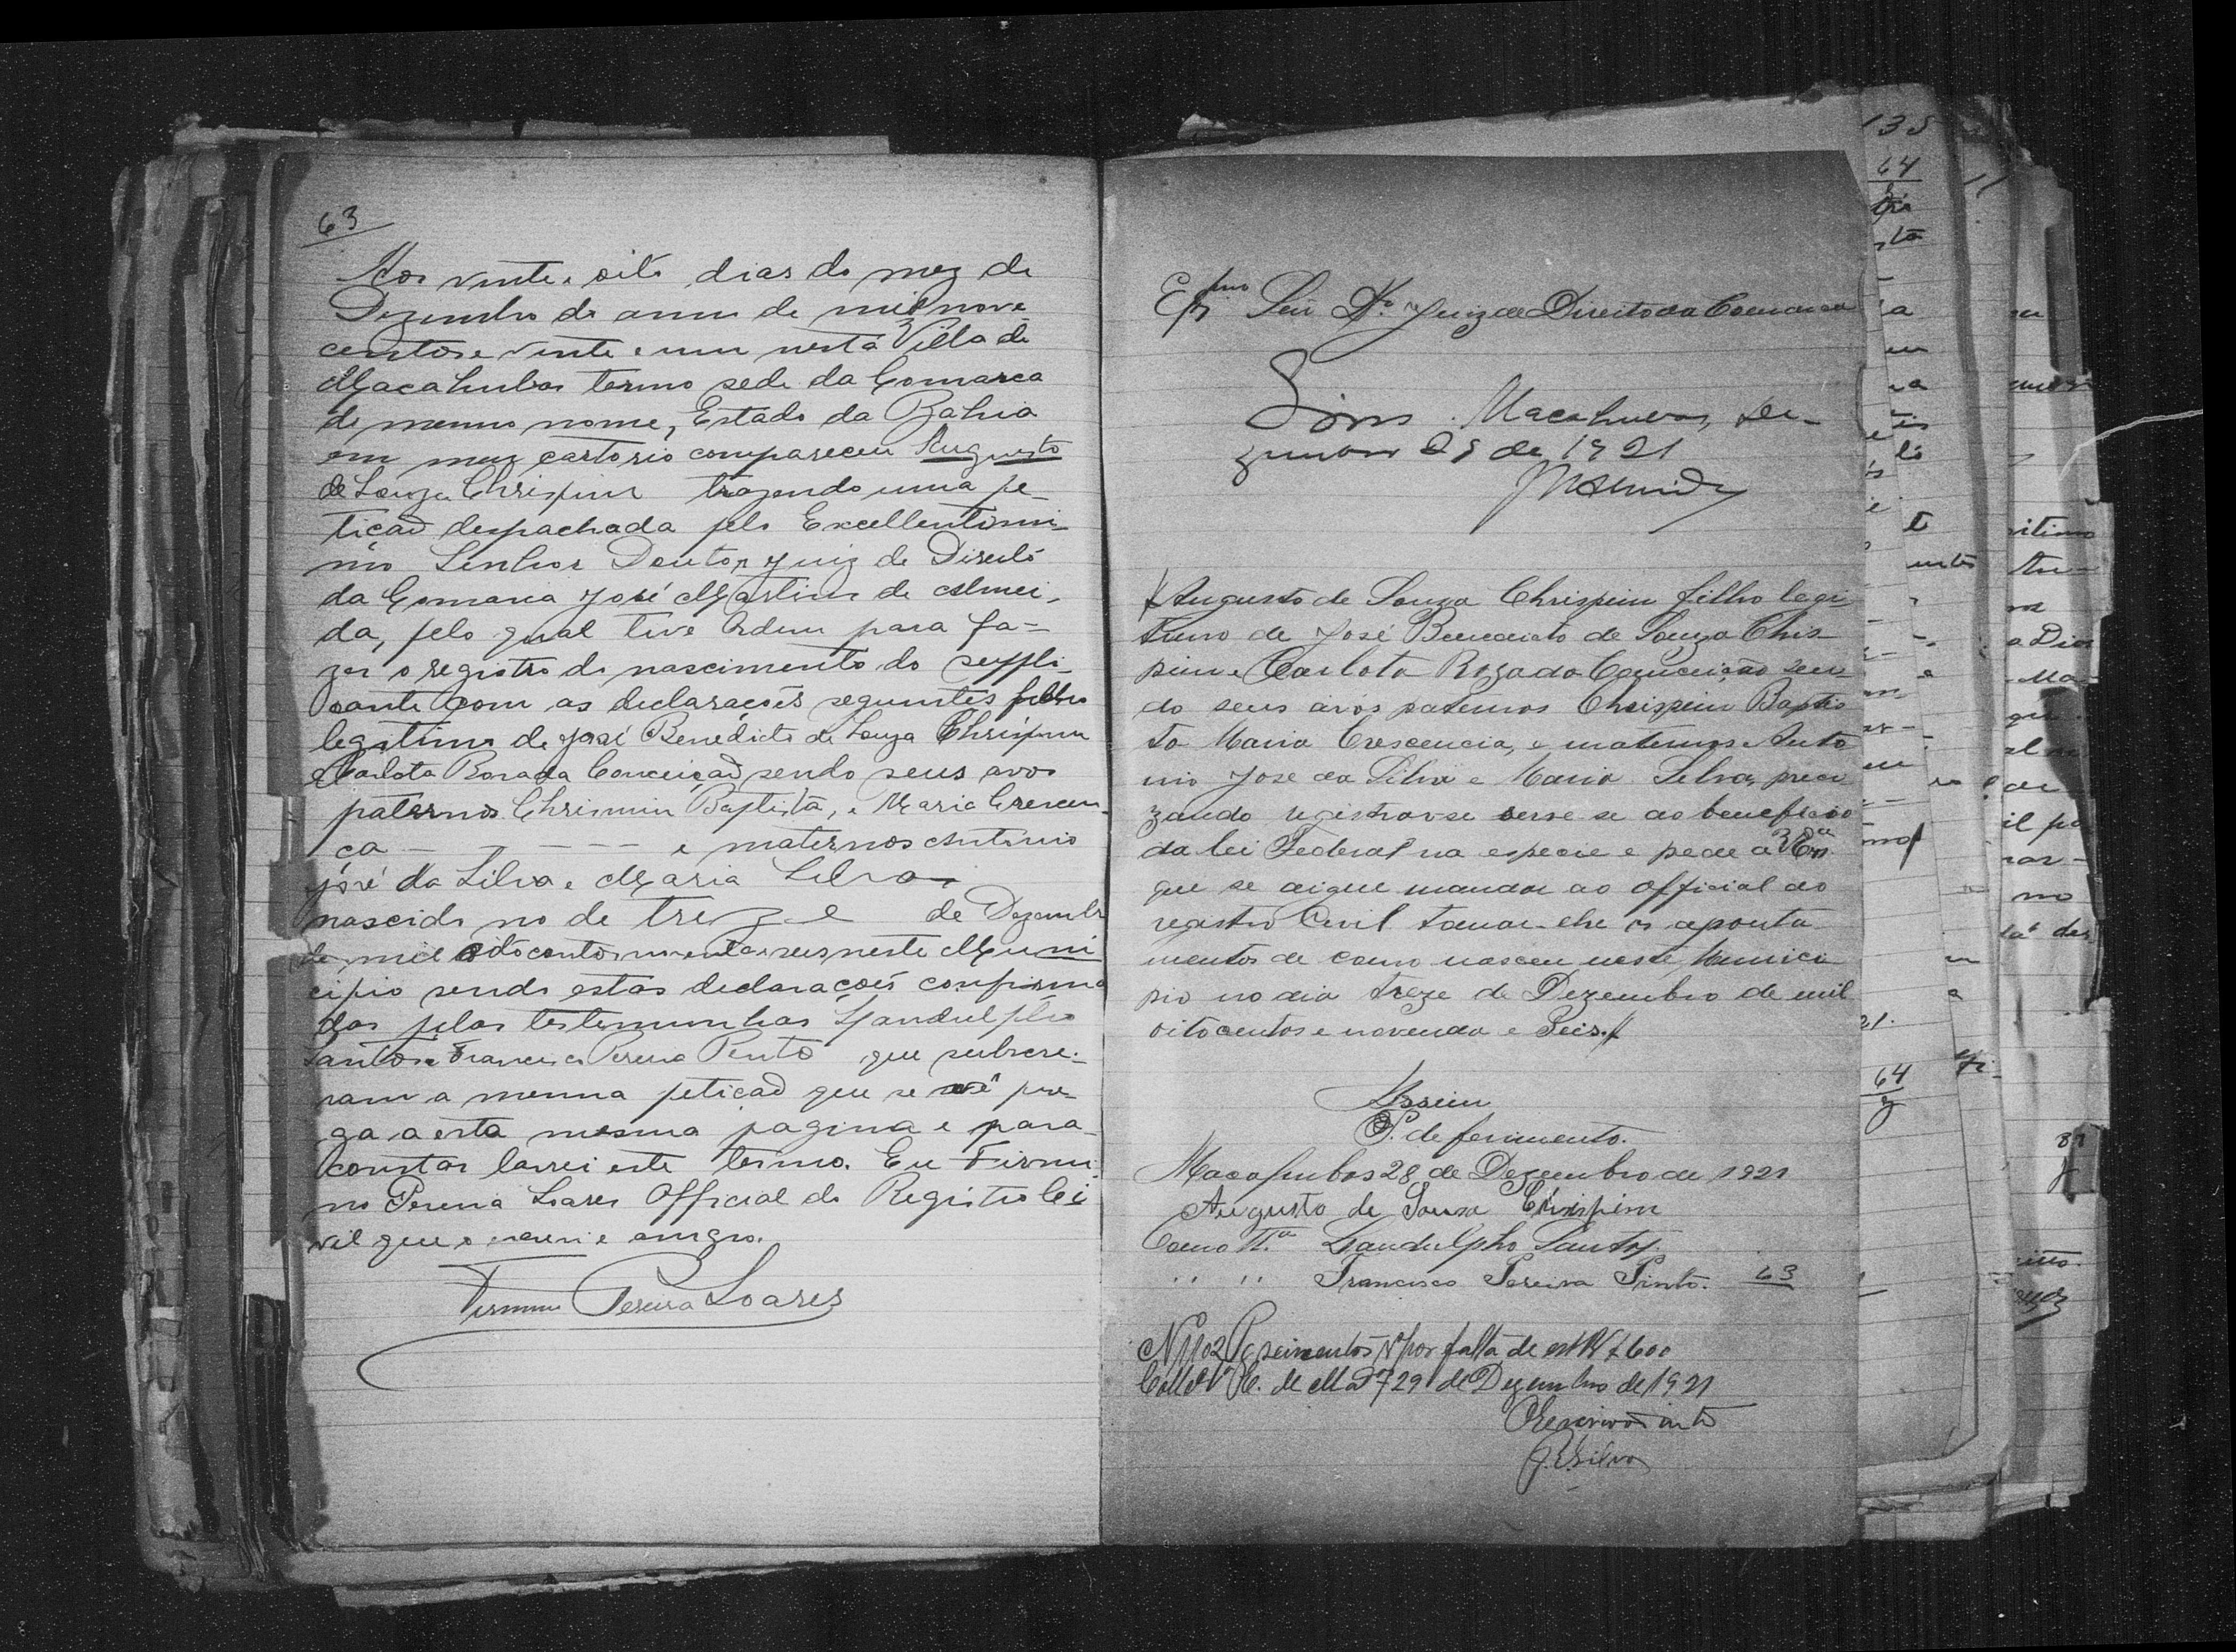 63
Aos vinte e oito dias do mez de
Dezembro do anno de mil nove-
centos e vinte e um nesta Villa de
Macahubas termo sede da Comarca
do mesmo nome, Estado da Bahia
em meu cartorio compareceu Augusto
de Souza Chrispim trazendo uma pe-
tiçaõ despachada pelo Excellentissi-
mo Senhor Doutor Juiz de Direito
da Comarca José Martins de Almei-
da, pelo qual tive ordem para fa-
zer o registro do nascimento do suppli-
cante com as declaraçoẽs seguintes filho
legitimo de José Benedicto de Souza Chrispim
e Carlota Rosa da Conceiçaõ sendo seus avos
paternos Chrispim Baptista, e Maria Crescen-
ça - - - - - e maternos Antonio
José da Silva e Maria Silva
nascido no de treze de Dezembro
de mil oitocentos noventa e seis neste Muni
cipio sendo estas declaraçoẽs confirma
das pelas testemunhas Gandulpho
Santos e Francisco Pereira Pinto que subscre-
veram a mesma petiçaõ que se vê pre-
ga a esta mesma pagina e para
constar lavrei este termo. Eu Firmi-
no Pereira Soares Official do Registro Ci
vil que o escrevi e assigno.
Firmino Pereira Soares
Exmo Snr Dr. Juiz de Direito da Comarca
Sim. Macahubas, De-
zembro 28 de 1921
MAlmeida
Augusto de Souza Chrispim filho legi
timo de José Benedicto de Souza Chris-
pim e Carlota Roza da Conceição sen-
do seus avós paternos Chrispim Baptis
ta Maria Crescencia, e maternos Anto
nio José da Silva e Maria Silva, preci
zando registrar-se serve-se do beneficio
da lei Federal na especie e pede a V Exa
que se digne mandar ao official do
registro Civil tomar-lhe os aponta
mentos de como nasceu neste Munici
pio no dia treze de Dezembro de mil
oitocentos e novenda e Seis.
Assim
P. deferimento.
Macahubas 28 de Dezembro de 1921
Augusto de Souza Chrispim
Como tta Gandulpho Santos.
" " Francisco Pereira Pinto. 63
N 1102 por falta de est
29 de Dezembro de 1921
Silva
135
64
64